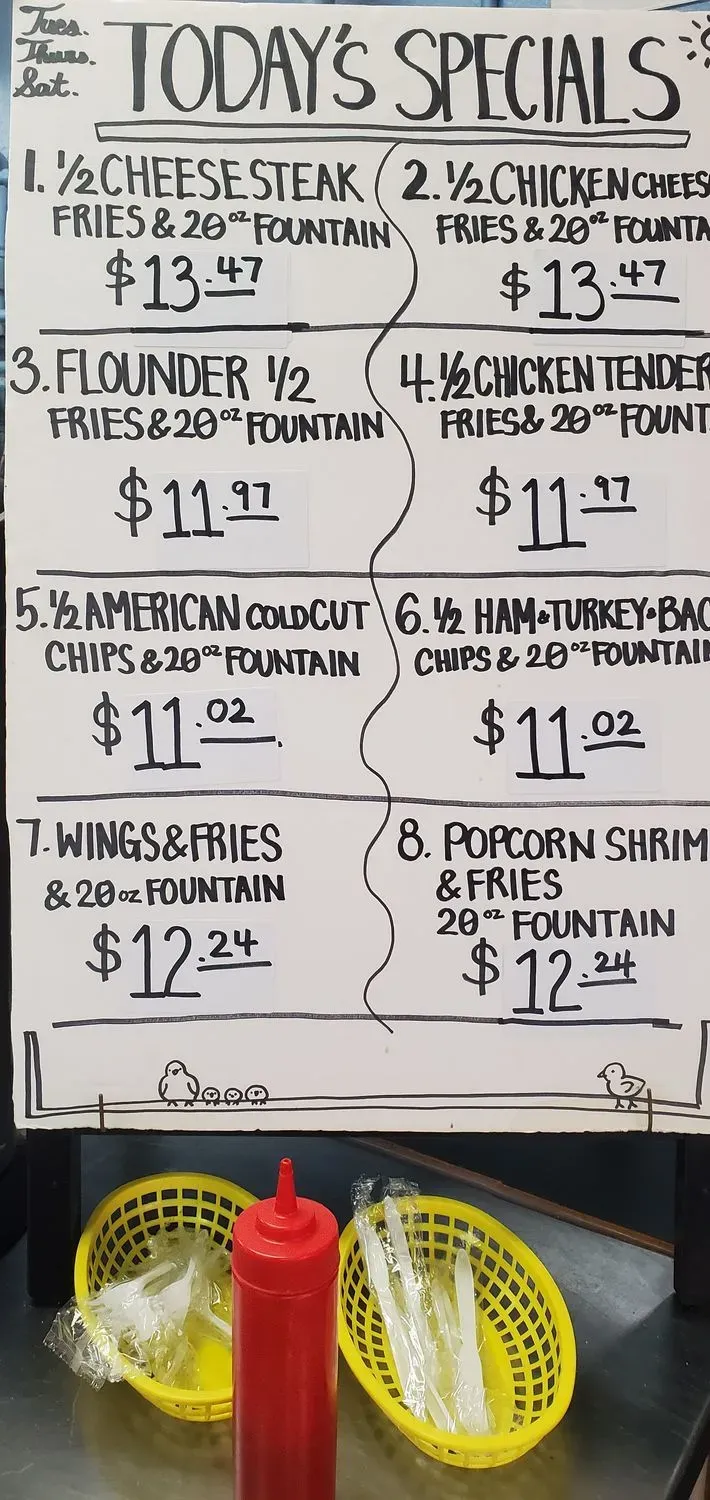 Tues.
Thurs.
Sat.
TODAY'S SPECIALS
1. 1/2 CHEESESTEAK
FRIES & 20oz FOUNTAIN
$13.47
2. 1/2 CHICKEN CHEES
FRIES & 20oz FOUNTA
$13.47
3. FLOUNDER 1/2
FRIES & 20oz FOUNTAIN
$11.97
4. 1/2 CHICKEN TENDER
FRIES & 20oz FOUNT
$11.97
5. 1/2 AMERICAN COLD CUT
CHIPS & 20oz FOUNTAIN
$11.02
6. 1/2 HAM•TURKEY•BAC
CHIPS & 20oz FOUNTAIN
$11.02
7. WINGS & FRIES
& 20oz FOUNTAIN
$12.24
8. POPCORN SHRIM
& FRIES
20oz FOUNTAIN
$12.24